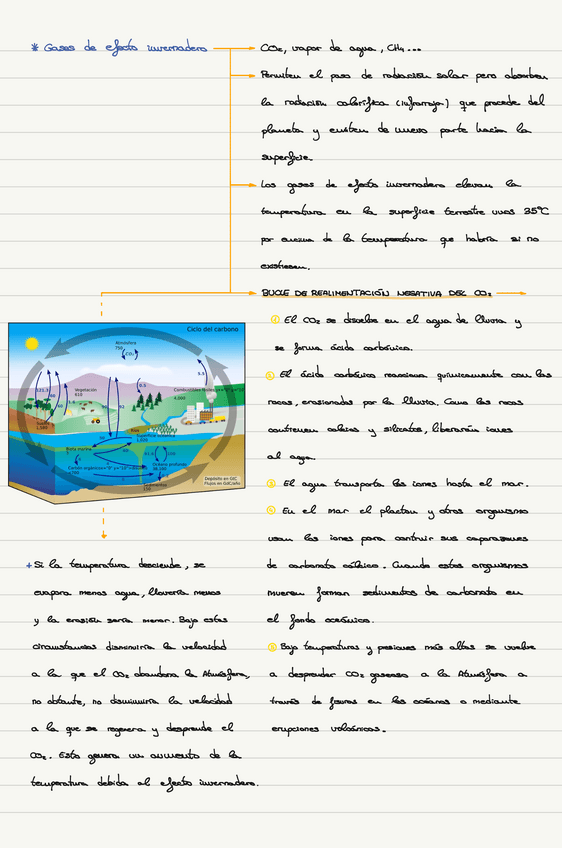 * Gases de efecto invernadero
CO₂, vapor de agua, CH₄...
Permiten el paso de radiación solar pero absorben
la radiación calorífica (infrarroja) que procede del
planeta y emiten de nuevo parte hacia la
superficie.
Los gases de efecto invernadero elevan la
temperatura en la superficie terrestre unos 35ºC
por encima de la temperatura que habría si no
existiesen.
BUCLE DE REALIMENTACIÓN NEGATIVA DEL CO₂
① El CO₂ se disuelve en el agua de lluvia y
se forma ácido carbónico.
② El ácido carbónico reacciona químicamente con las
rocas, erosionadas por la lluvia. Como las rocas
contienen calcios y silicatos, liberarán iones
al agua.
③ El agua transporta los iones hasta el mar.
④ En el mar el plactan y otros organismo
usan los iones para contruir sus caparazones
de carbonato cálcico. Cuando estos organismos
mueren forman sedimentos de carbonato en
el fondo oceánico.
⑤ Bajo temperaturas y presiones más altas se vuelve
a desprender CO₂ gaseoso a la Atmósfera a
través de fosas en los océanos o mediante
erupciones volcánicas.
Ciclo del carbono
Atmosfera
750
CO₂
121.3
60
1.6
60
92
90
0.5
5.5
Vegetación
610
Combustibles fósiles
4,000
Suelos
1,580
Ríos
Superficie oceánica
1,020
Biota marina
3
Carbón orgánico
Océano profundo
38,100
Sedimentos
150
Depósito en GtC
Flujos en GtC/año
+ Si la temperatura desciende, se
evapora menos agua, llovería menos
y la erosión sería menor. Bajo estas
circunstancias disminuiría la velocidad
a la que el CO₂ abandona la Atmósfera,
no obtante, no disminuiría la velocidad
a la que se regenera y desprende el
CO₂. Esto genera un aumento de la
temperatura debido al efecto invernadero.